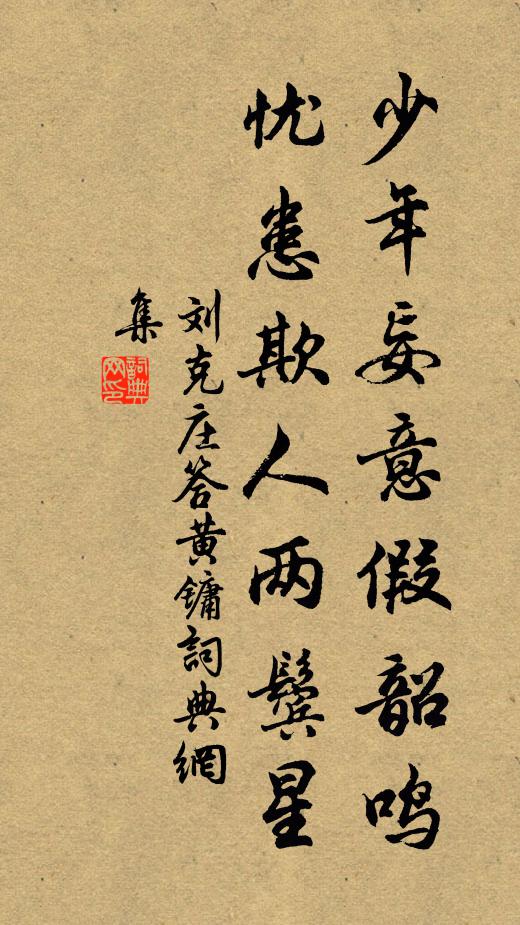 少年妄意假韶鸣
忧患欺人两鬓星
刘克庄答黄镛詞典網
集
詞典网印